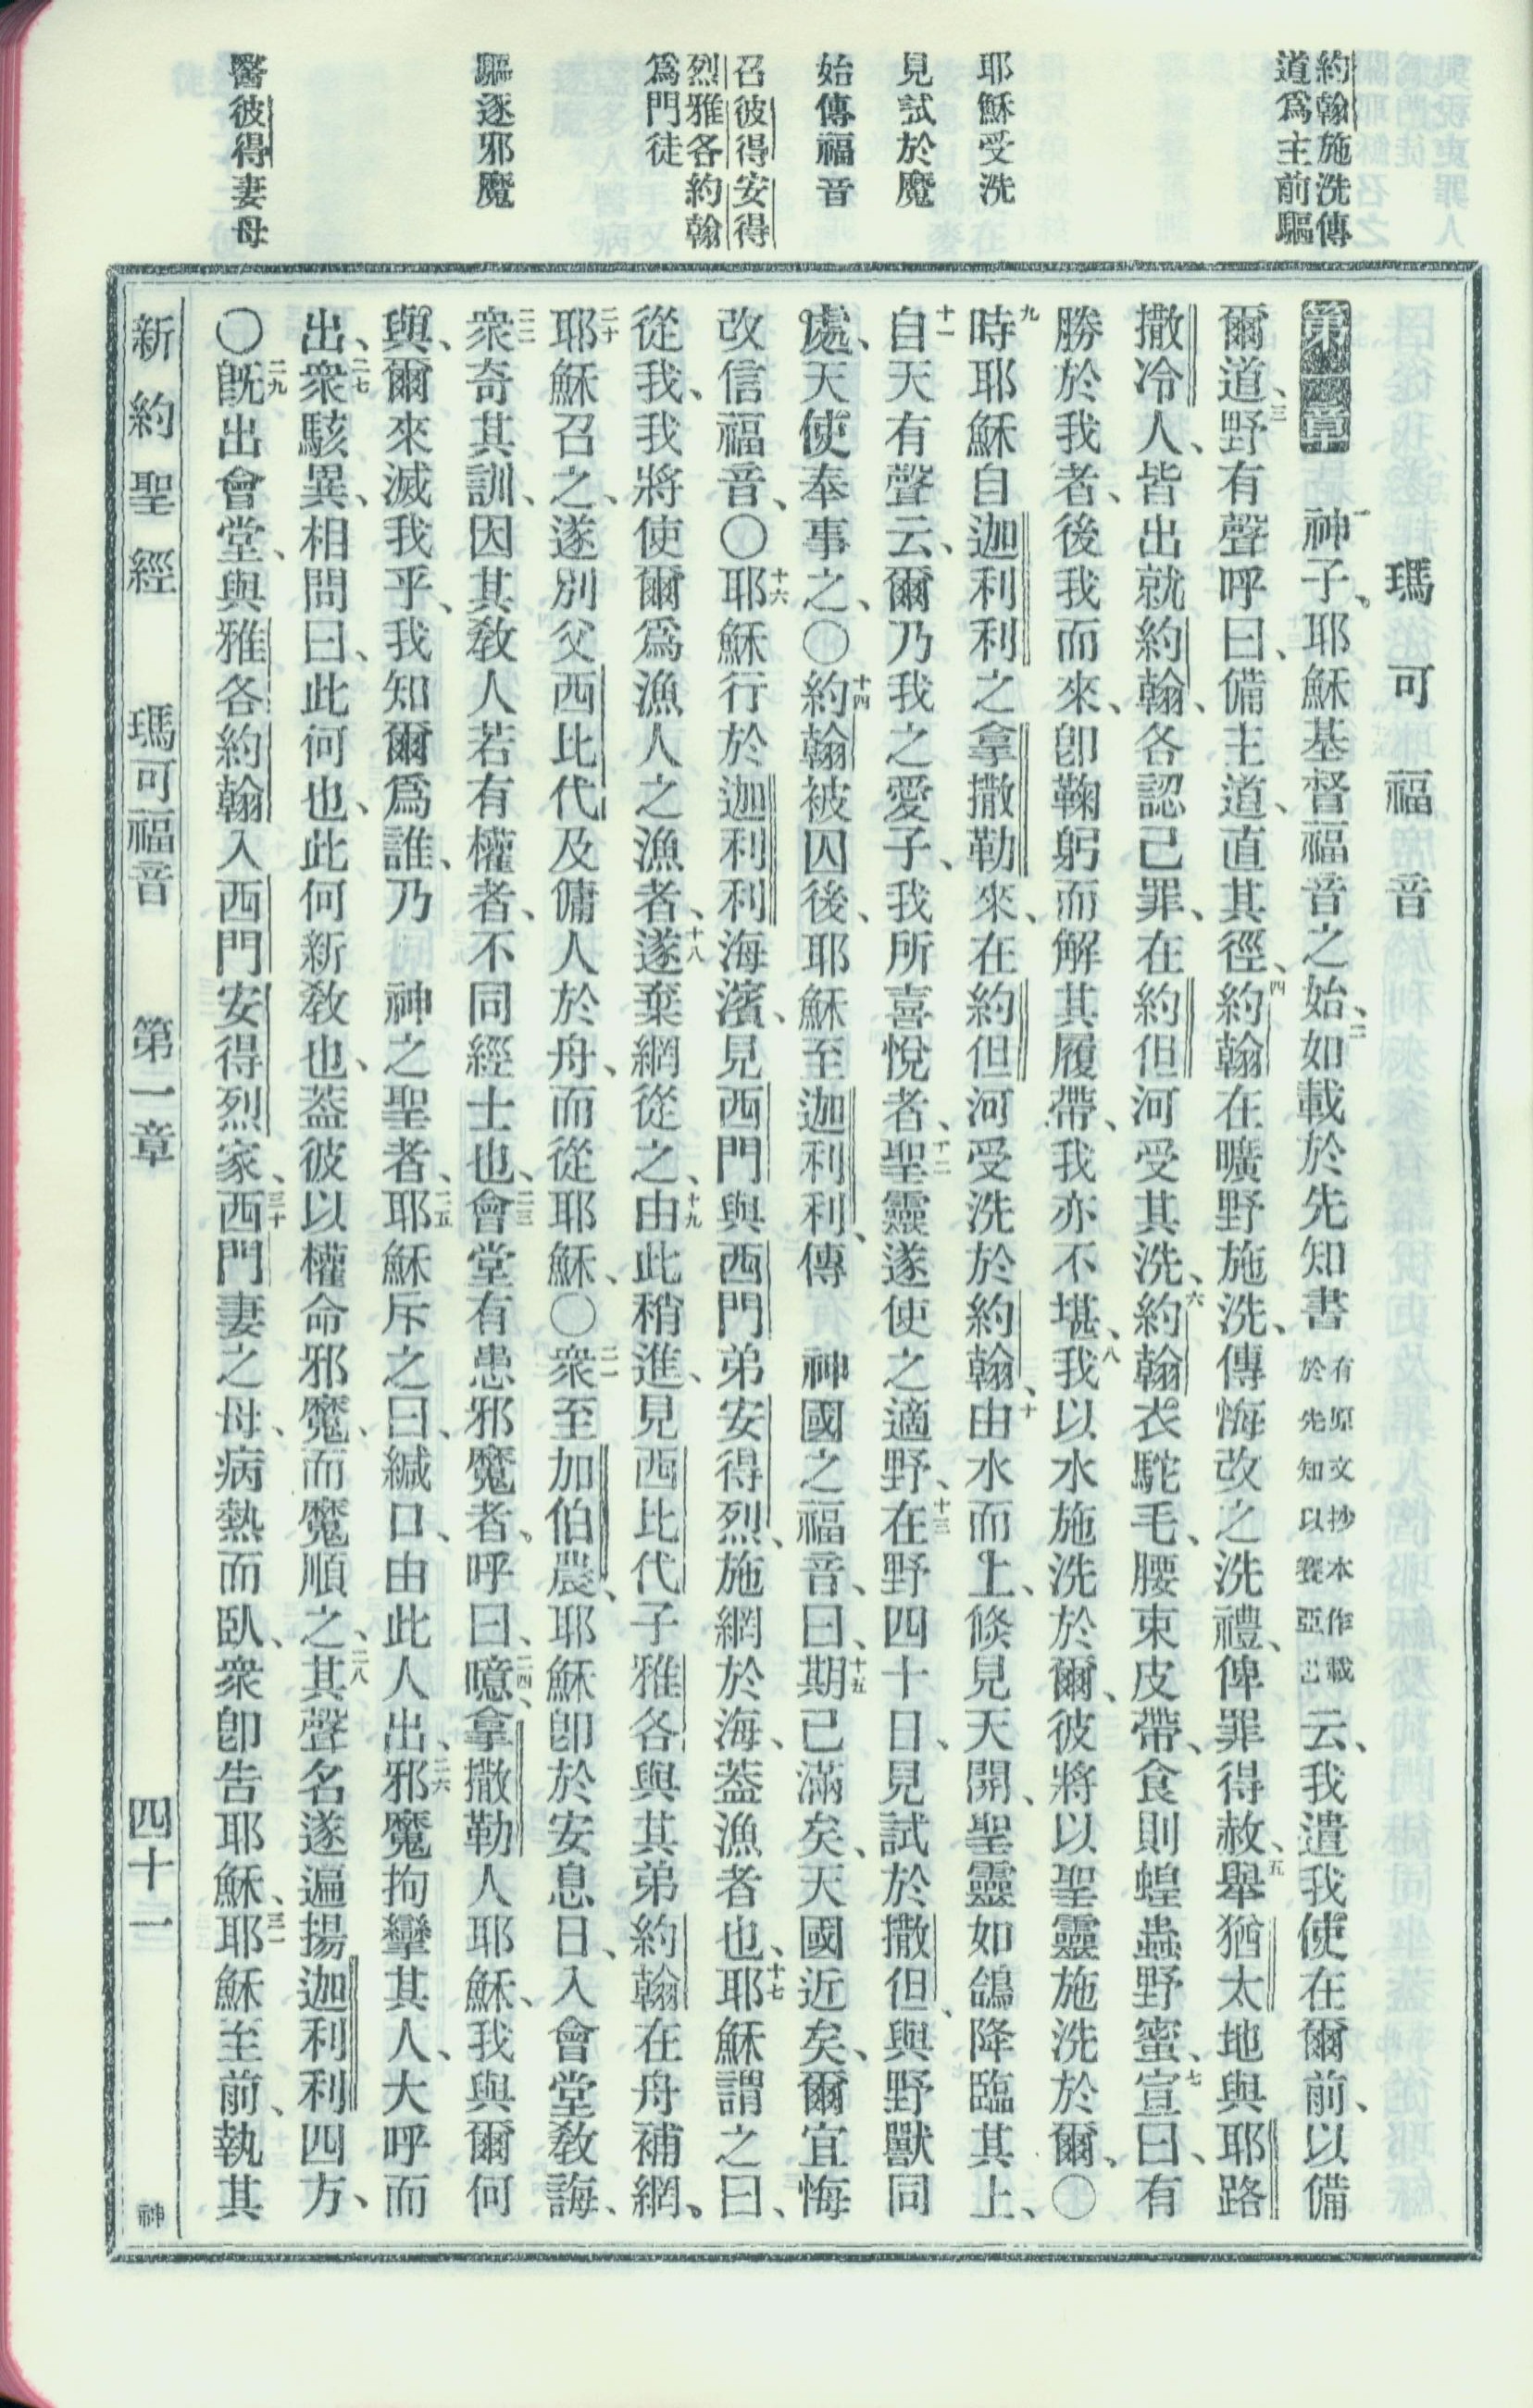 約翰施洗傳
道爲主前驅
耶穌受洗
見試於魔
始傳福音
召彼得安得
烈雅各約翰
爲門徒
驅逐邪魔
醫彼得妻母
瑪可福音
第一章 一神子、耶穌基督福音之始、二如載於先知書有原文抄本作載於先知以賽亞書云、我遣我使在爾前、以備
爾道、三野有聲呼曰、備主道、直其徑、四約翰在曠野施洗、傳悔改之洗禮、俾罪得赦、五舉猶太地與耶路
撒冷人、皆出就約翰、各認己罪、在約但河受其洗、六約翰衣駝毛、腰束皮帶、食則蝗蟲野蜜、七宣曰、有
勝於我者、後我而來、卽鞠躬而解其履帶、我亦不堪、八我以水施洗於爾、彼將以聖靈施洗於爾、〇
九時耶穌自迦利利之拿撒勒來、在約但河受洗於約翰、十由水而上、倐見天開、聖靈如鴿降臨其上、
十一自天有聲云、爾乃我之愛子、我所喜悅者、十二聖靈遂使之適野、十三在野四十日、見試於撒但、與野獸同
處、天使奉事之、〇十四約翰被囚後、耶穌至迦利利、傳 神國之福音、曰、十五期已滿矣、天國近矣、爾宜悔
改信福音、〇十六耶穌行於迦利利海濱、見西門與西門弟安得烈、施網於海、蓋漁者也、十七耶穌謂之曰、
從我、我將使爾爲漁人之漁者、十八遂棄網從之、十九由此稍進、見西比代子雅各與其弟約翰在舟補網。
二十耶穌召之、遂別父西比代及傭人於舟、而從耶穌、〇二一衆至加伯農、耶穌卽於安息日、入會堂敎誨、
二二衆奇其訓、因其敎人若有權者、不同經士也、二三會堂有患邪魔者。呼曰、二四噫、拿撒勒人耶穌、我與爾何
與、爾來滅我乎、我知爾爲誰、乃 神之聖者、二五耶穌斥之曰、緘口、由此人出、二六邪魔拘攣其人、大呼而
出、二七衆駭異、相問曰、此何也、此何新敎也、蓋彼以權命邪魔、而魔順之、二八其聲名遂遍揚迦利利四方、
〇二九旣出會堂、與雅各約翰入西門安得烈家、三十西門妻之母、病熱而臥、衆卽告耶穌、三一耶穌至前、執其
新約聖經 瑪可福音 第一章 四十一 神